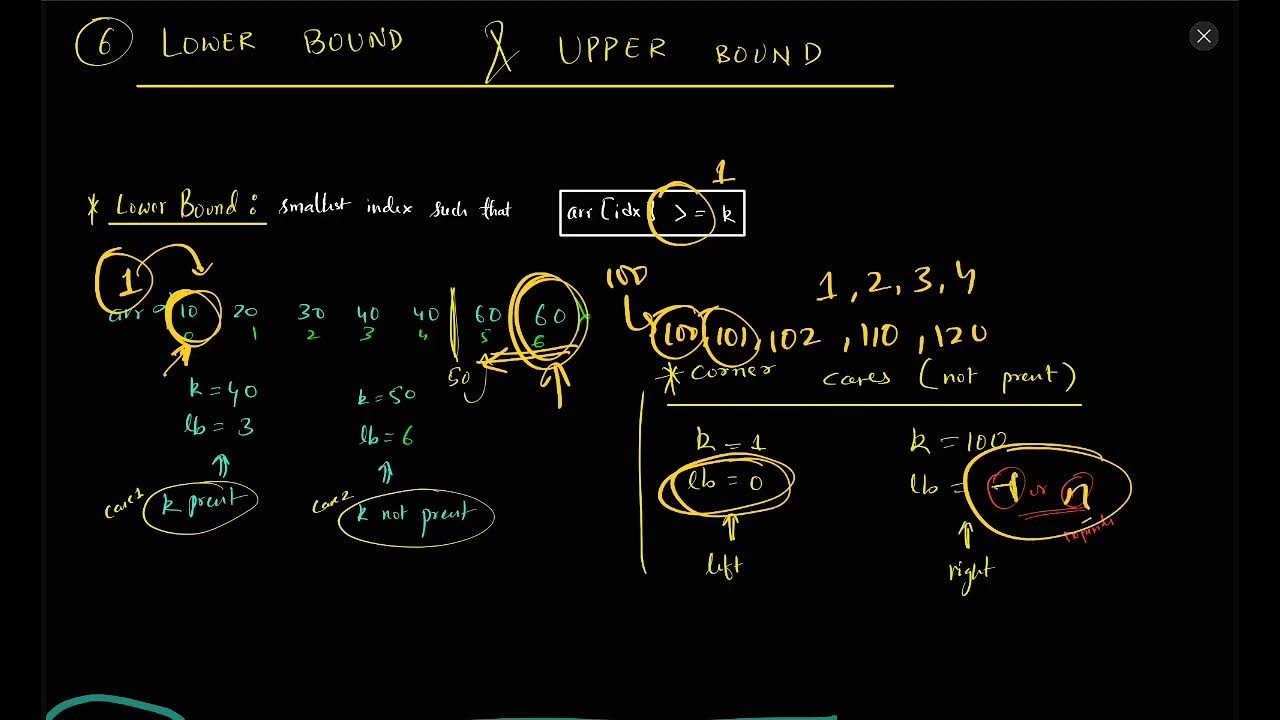 6 LOWER BOUND & UPPER BOUND
1
* Lower Bound : smallest index such that arr[idx] >= k
1
100 1, 2, 3, 4
arr 10 20 30 40 40 60 60
100, 101, 102, 110, 120
0 1 2 3 4 5 6
50
* Corner cases (not present)
k = 40
lb = 3
case1
k present
k = 50
lb = 6
case2
k not present
k = 1
lb = 0
left
k = 100
lb = -1 or n
right